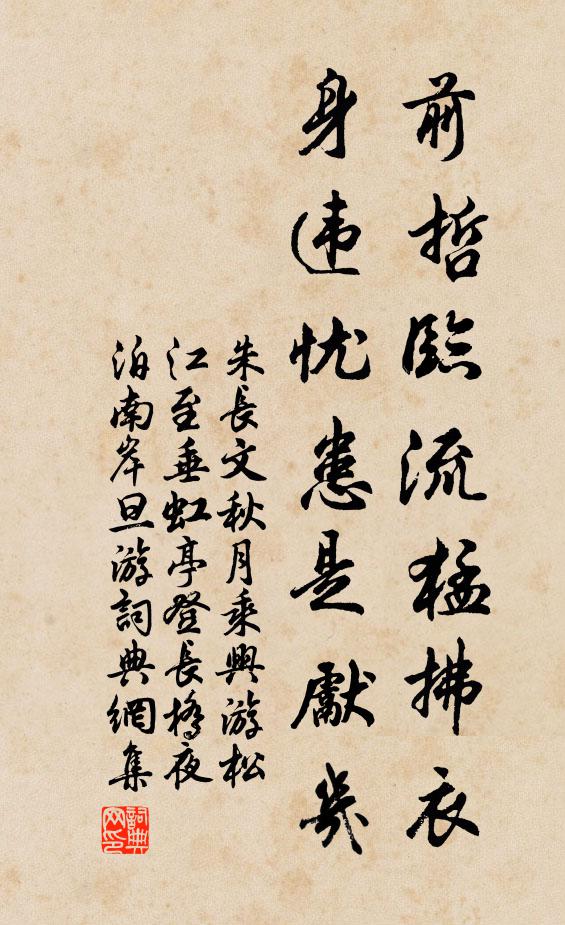 前哲臨流猛拂衣
身违忧患是獻幾
朱長文秋月乘興游松
江至垂虹亭登長橋夜
泊南岸旦游詞典網集
詞典网印